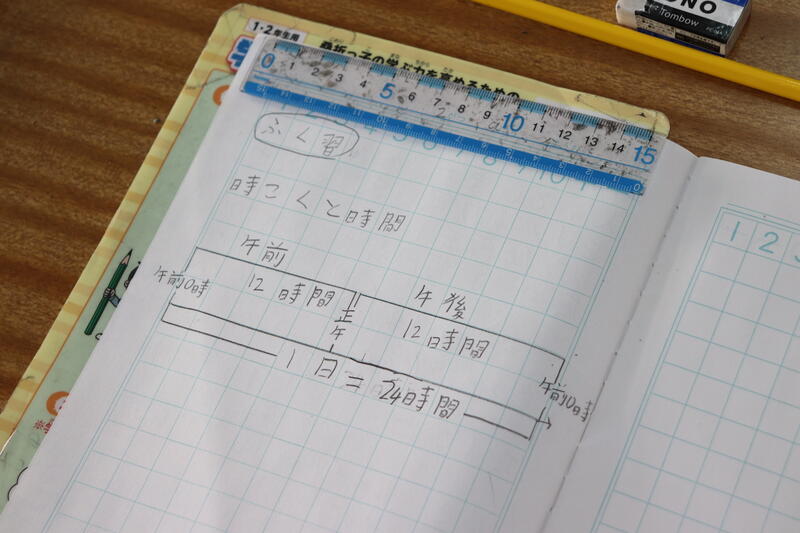 1・2年生用
桑折っ子の学ぶ力を高めるための
MONO
Tombow
0 1 2 3 4 5 6 7 8 9 10 11 12 13 14 15
ふく習
時こくと時間
午前
午後
午前0時
12時間
正午
12時間
午前0時
1日=24時間
1 2